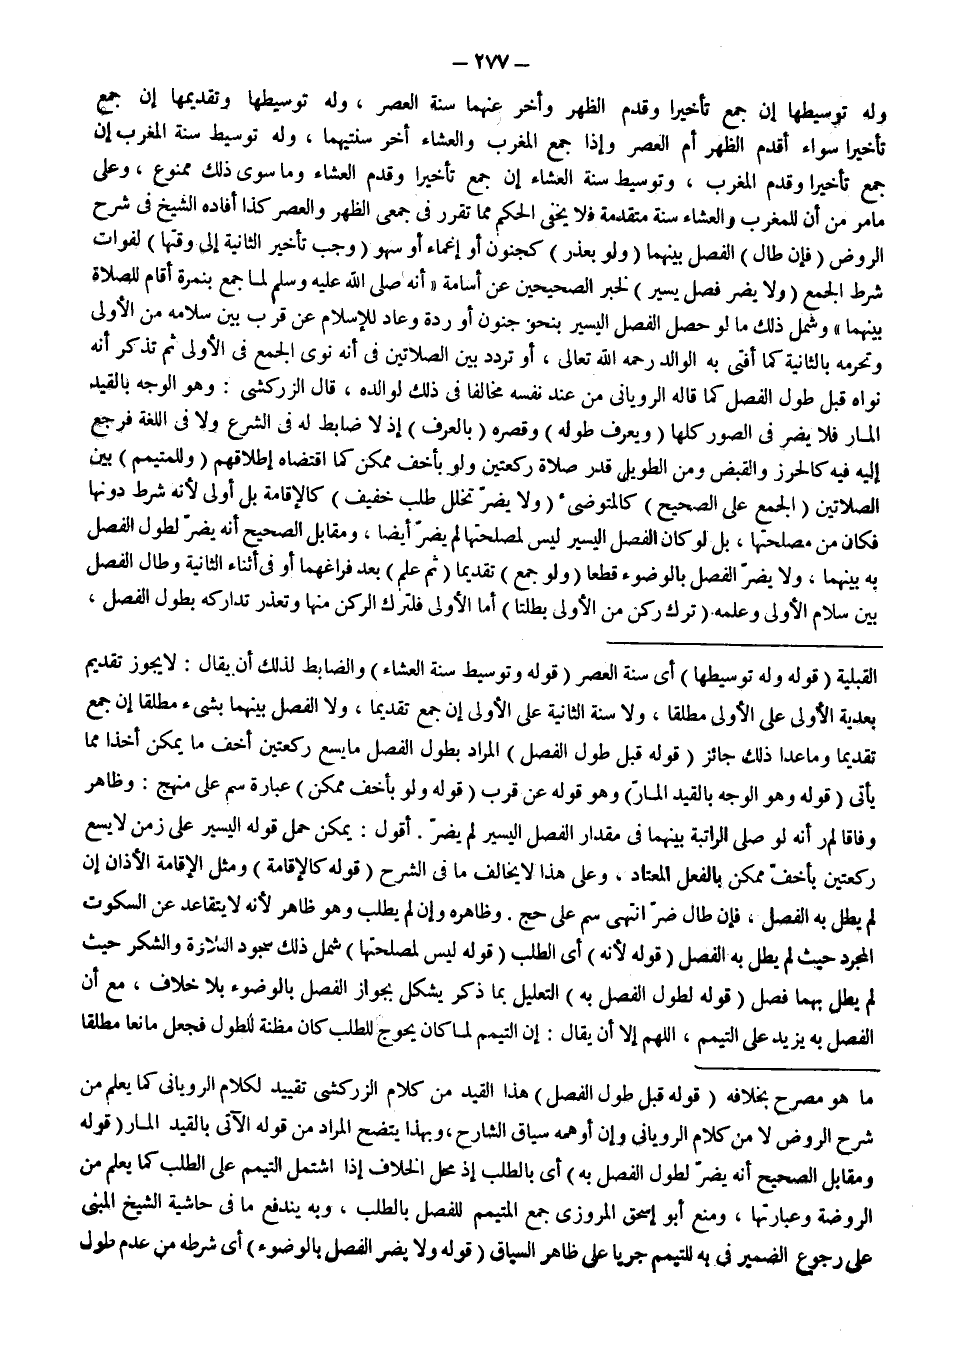 – ٢٧٧ –
وله توسيطها إن جمع تأخيرا وقدم الظهر وأخر عنهما سنة العصر ، وله توسيطها وتقديمها إن جمع
تأخيرا سواء أقدم الظهر أم العصر وإذا جمع المغرب والعشاء أخر سنتيهما ، وله توسيط سنة المغرب إن
جمع تأخيرا وقدم المغرب ، وتوسيط سنة العشاء إن جمع تأخيرا وقدم العشاء وما سوى ذلك ممنوع ، وعلى
مامر من أن للمغرب والعشاء سنة متقدمة فلا يخفى الحكم مما تقرر فى جمعى الظهر والعصر كذا أفاده الشيخ فى شرح
الروض ( فإن طال ) الفصل بينهما ( ولو بعذر ) كجنون أو إغماء أو سهو ( وجب تأخير الثانية إلى وقتها ) لفوات
شرط الجمع ( ولا يضر فصل يسير ) لخبر الصحيحين عن أسامة « أنه صلى الله عليه وسلم لما جمع بنمرة أقام للصلاة
بينهما » وشمل ذلك ما لو حصل الفصل اليسير بنحو جنون أو ردة وعاد للإسلام عن قرب بين سلامه من الأولى
وتحرمه بالثانية كما أفتى به الوالد رحمه الله تعالى ، أو تردد بين الصلاتين فى أنه نوى الجمع فى الأولى ثم تذكر أنه
نواه قبل طول الفصل كما قاله الرويانى من عند نفسه مخالفا فى ذلك لوالده ، قال الزركشى : وهو الوجه بالقيد
المار فلا يضر فى الصور كلها ( ويعرف طوله ) وقصره ( بالعرف ) إذ لا ضابط له فى الشرع ولا فى اللغة فرجع
إليه فيه كالحرز والقبض ومن الطويل قدر صلاة ركعتين ولو بأخف ممكن كما اقتضاه إطلاقهم ( وللمتيمم ) بين
الصلاتين ( الجمع على الصحيح ) كالمتوضىء ( ولا يضرّ تخلل طلب خفيف ) كالإقامة بل أولى لأنه شرط دونها
فكان من مصلحتها ، بل لو كان الفصل اليسير ليس لمصلحتها لم يضرّ أيضا ، ومقابل الصحيح أنه يضرّ لطول الفصل
به بينهما ، ولا يضرّ الفصل بالوضوء قطعا ( ولو جمع ) تقديما ( ثم علم ) بعد فراغهما أو فى أثناء الثانية وطال الفصل
بين سلام الأولى وعلمه ( ترك ركن من الأولى بطلتا ) أما الأولى فلترك الركن منها وتعذر تداركه بطول الفصل ،
القبلية ( قوله وله توسيطها ) أى سنة العصر ( قوله وتوسيط سنة العشاء ) والضابط لذلك أن يقال : لايجوز تقديم
بعدية الأولى على الأولى مطلقا ، ولا سنة الثانية على الأولى إن جمع تقديما ، ولا الفصل بينهما بشىء مطلقا إن جمع
تقديما وماعدا ذلك جائز ( قوله قبل طول الفصل ) المراد بطول الفصل مايسع ركعتين أخف ما يمكن أخذا مما
يأتى ( قوله وهو الوجه بالقيد المارّ ) وهو قوله عن قرب ( قوله ولو بأخف ممكن ) عبارة سم على منهج : وظاهر
وفاقا لمر أنه لو صلى الراتبة بينهما فى مقدار الفصل اليسير لم يضرّ . أقول : يمكن حمل قوله اليسير على زمن لايسع
ركعتين بأخفّ ممكن بالفعل المعتاد ، وعلى هذا لايخالف ما فى الشرح ( قوله كالإقامة ) ومثل الإقامة الأذان إن
لم يطل به الفصل ، فإن طال ضرّ انتهى سم على حج . وظاهره وإن لم يطلب وهو ظاهر لأنه لا يتقاعد عن السكوت
المجرد حيث لم يطل به الفصل ( قوله لأنه ) أى الطلب ( قوله ليس لمصلحتها ) شمل ذلك سجود التلاوة والشكر حيث
لم يطل بهما فصل ( قوله لطول الفصل به ) التعليل بما ذكر يشكل بجواز الفصل بالوضوء بلا خلاف ، مع أن
الفصل به يزيد على التيمم ، اللهم إلا أن يقال : إن التيمم لما كان يحوج للطلب كان مظنة للطول فجعل مانعا مطلقا
ما هو مصرح بخلافه ( قوله قبل طول الفصل ) هذا القيد من كلام الزركشى تقييد لكلام الرويانى كما يعلم من
شرح الروض لا من كلام الرويانى وإن أوهمه سياق الشارح ، وبهذا يتضح المراد من قوله الآتى بالقيد المار ( قوله
ومقابل الصحيح أنه يضرّ لطول الفصل به ) أى بالطلب إذ محل الخلاف إذا اشتمل التيمم على الطلب كما يعلم من
الروضة وعبارتها ، ومنع أبو إسحق المروزى جمع المتيمم للفصل بالطلب ، وبه يندفع ما فى حاشية الشيخ المبنى
على رجوع الضمير فى به للتيمم جريا على ظاهر السياق ( قوله ولا يضر الفصل بالوضوء ) أى شرطه من عدم طول